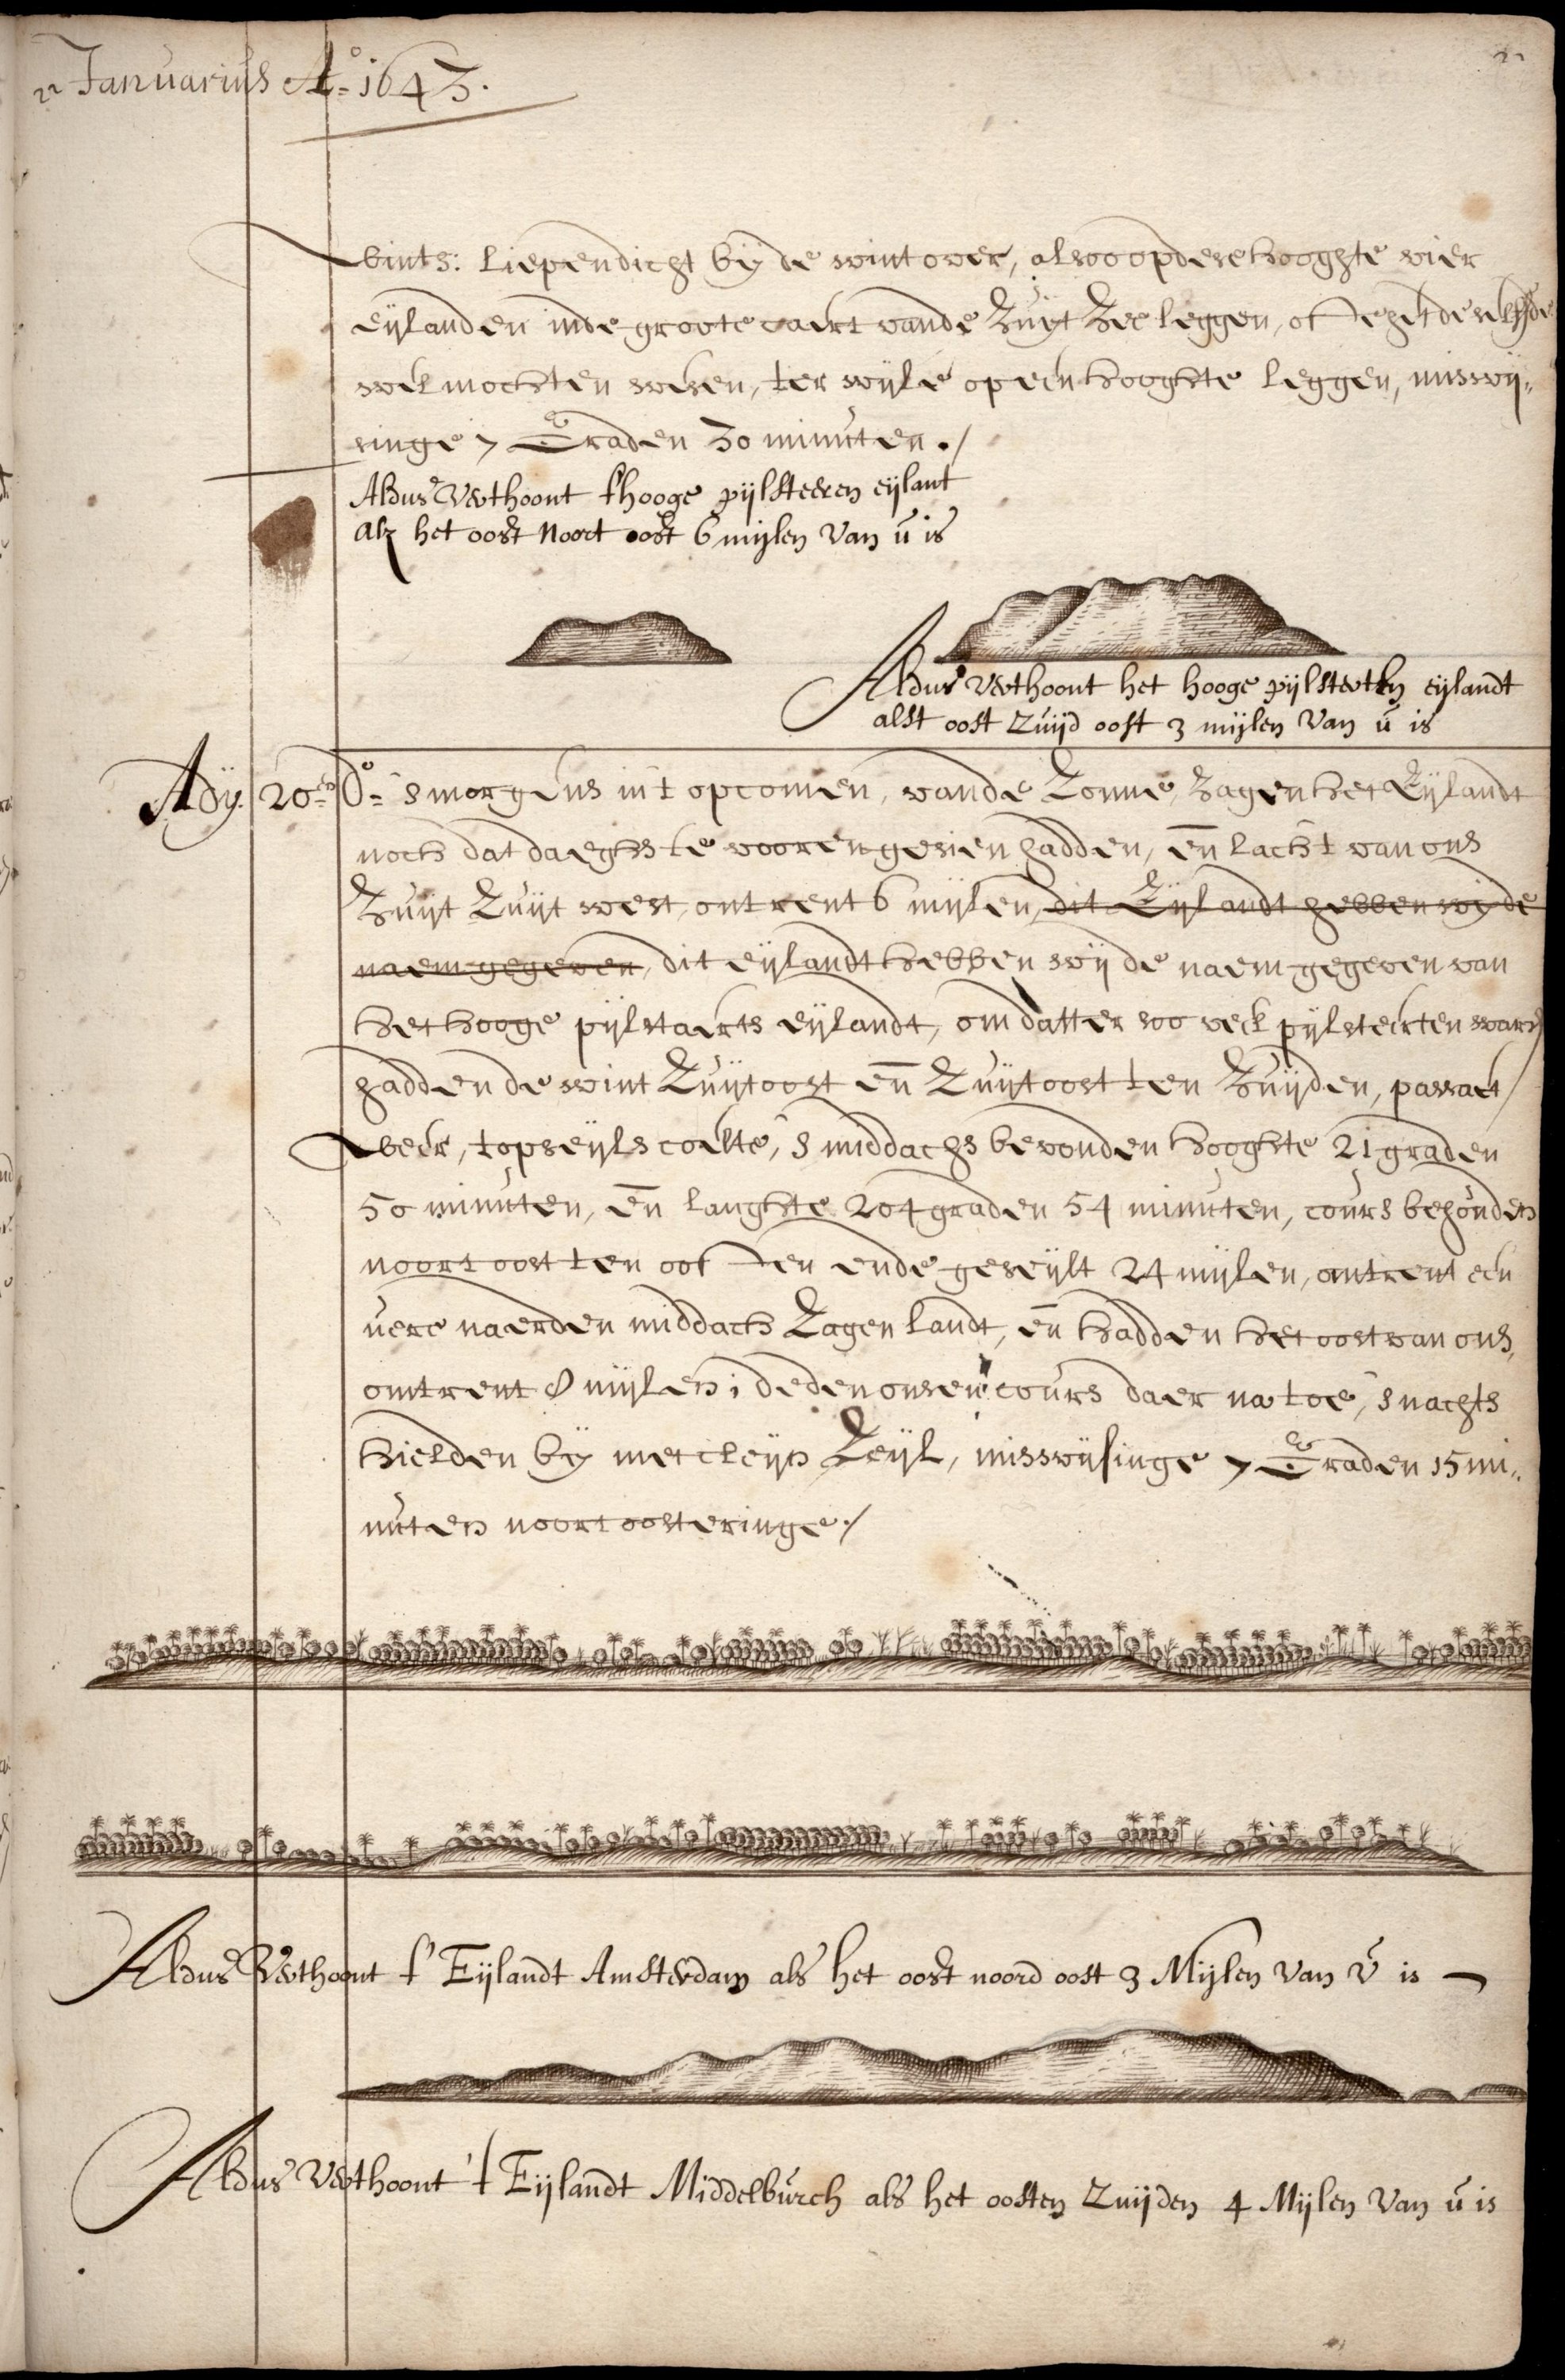 Januarius Aº= 1643.
vints: liepen dicht bÿ de wint over, alsoo op dese hooghte vier
eÿlanden inde groote caert vande Zuÿt Zee leggen, oft dese
wel mochten wesen, ter wÿle op een hooghte leggen, miswÿ„
singe 7 Graden 30 minuten ./
Aldus Verthoont t'hooge pijlsteeren eijlant
als het oost Noort oost 6 mijlen Van ú is
Aldus Verthoont het hooge pijlsteerten eijlandt
alst oost zuijd oost 3 mijlen Van ú is
Adÿ. 20=en dº= 'smorgens in't opcomen, vande Zonne, Zagen het Eÿlandt
noch dat daeghs te vooren gesien hadden, en̄ lach't van ons
Zuijt Zuijt west, ontrent 6 mijlen, dit Eÿlandt hebben wÿ de
naem gegeven, dit eijlandt hebben wij de naem gegeven van
het hooge pijlstaerts eijlandt, om datter soo veel pijlsteerten waren
hadden de wint Zuijtoost en̄ Zuijtoost ten Zuijden, passaet
weer, topseijls coelte, 's middachs bevonden hooghte 21 graden
50 minuten, en̄ langhte 204 graden 54 minuten, cours behouden
noortoost ten oosten ende geseijlt 24 mijlen, ontrent een
uere naerden middach Zagen landt, en̄ hadden het oost van ons,
omtrent 8 mijlen; deden onsen cours daer na toe, 's nachts
hielden bÿ met cleijn Zeijl, miswijsinge 7 Graden 15 mi„
nuten noortoosteringe ./
Aldus Verthoont t' Eijlandt Amsterdam als het oost noord oost 3 Mijlen Van ú is
Aldus Verthoont 't Eijlandt Middelbúrch als het oosten Zuijden 4 Mijlen Van ú is